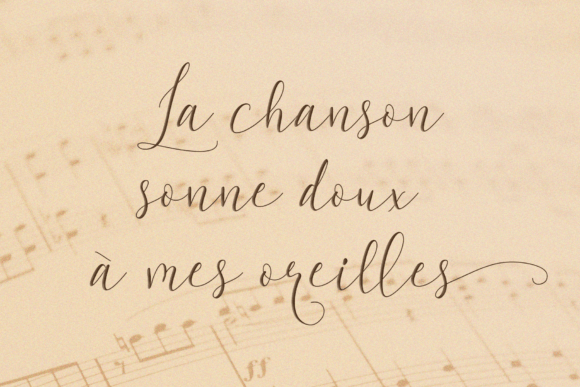 La chanson
sonne doux
à mes oreilles
ff